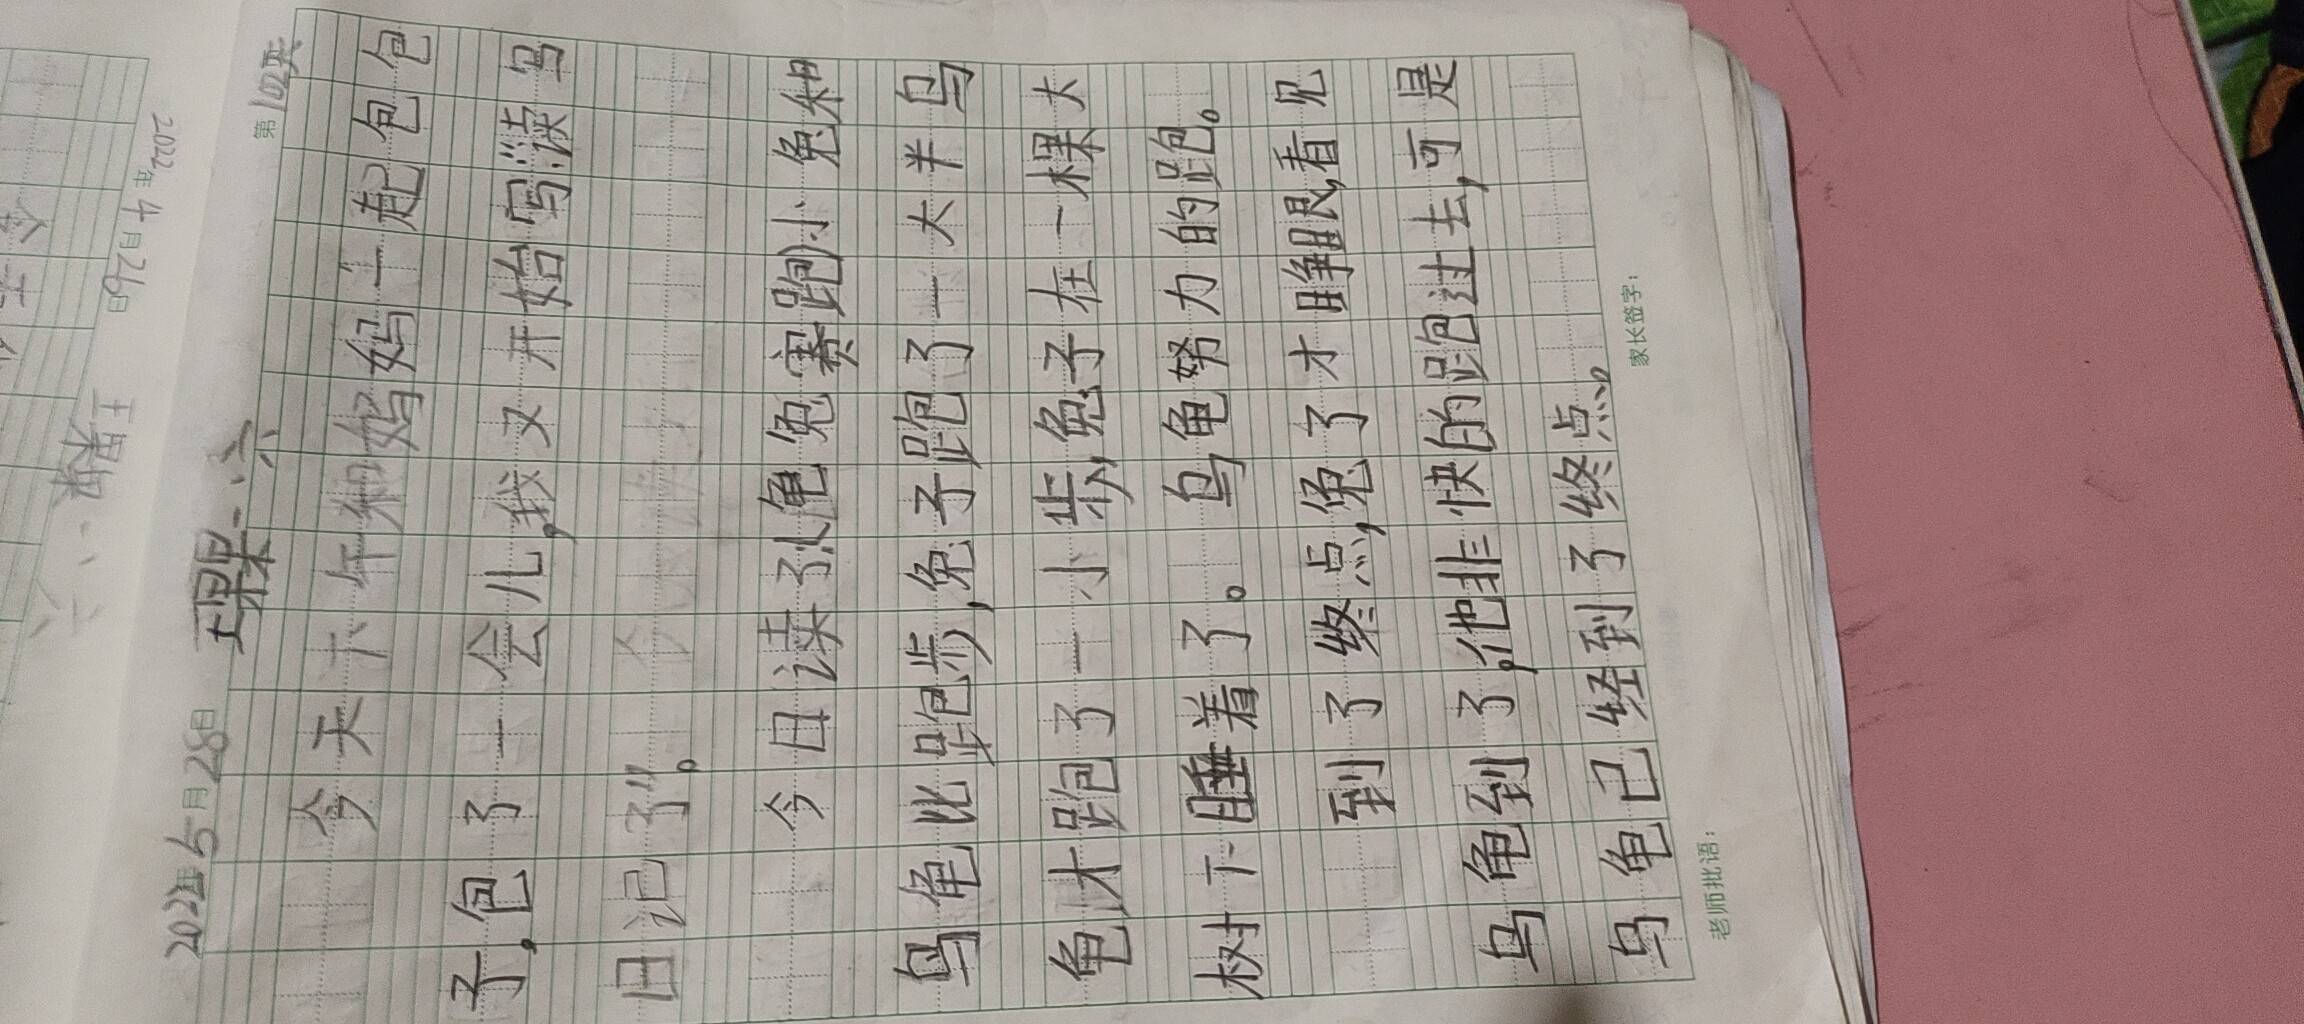 2022年4月26日
第102页
2022年5月28日
今天下午和妈妈一起包包
子,包了一会儿,我又开始写读写
日记了。
今日读了《龟兔赛跑》小兔和
乌龟比跑步,兔子跑了一大半乌
龟才跑了一小步,兔子在一棵大
树下睡着了。乌龟努力的跑。
到了终点,兔了才睁眼,看见
乌龟到了,他非快的跑过去,可是
乌龟已经到了终点。
老师批语: 家长签字: